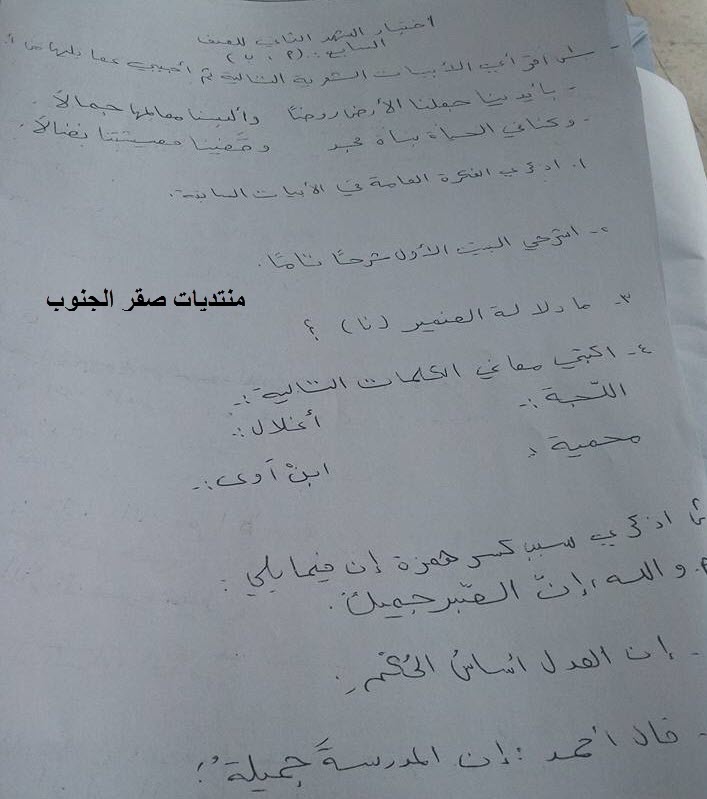 اختبار الشهر الثاني للصف
السابع
س١ اقرأي الأبيات الشعرية التالية ثم أجيبي عما يليها من أ
- بأيدينا جعلنا الأرض روضًا وألبسنا معالمها جمالاً.
- وكنا في الحياة بناة مجد وصُغنا معيشتنا نضالاً.
١. اذكري الفكرة العامة في الأبيات السابقة.
٢- اشرحي البيت الأول شرحًا تامًا.
منتديات صقر الجنوب
٣- ما دلالة الضمير (نا) ؟
٤- اكتبي معاني الكلمات التالية :-
اللّجبة :- أغلال :-
محمية : ابنْ آوى :-
اذكري سبب كسر همزة إن فيما يلي :
والله، إنّ الصّبر جميلٌ.
- إن العدل أساسُ الحُكْمِ.
- قال أحمد : إن المدرسةَ جميلةٌ؛